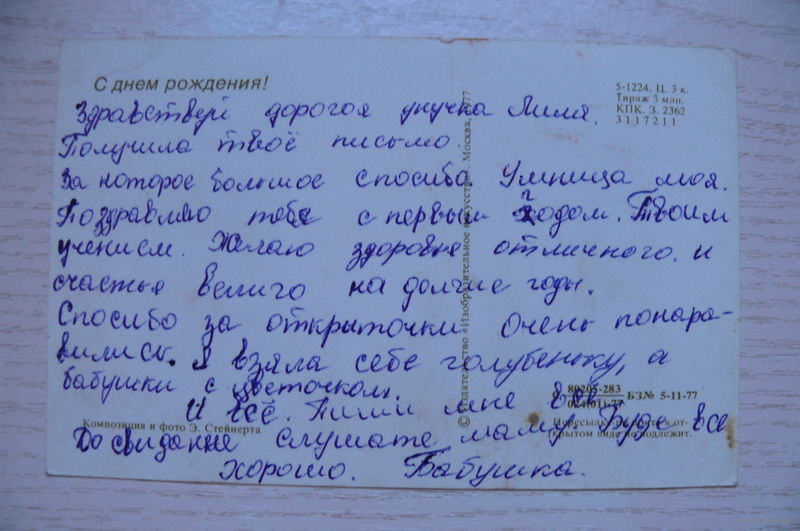 С днем рождения!
5-1224. Ц. 3 к.
Тираж 3 млн.
КПК. З. 2362
3 1 1 7 2 1 1
Здравствей дорогоя унучка Лиля.
Получила твоё письмо.
За которое большое спосибо Умница моя.
Поздравляю тебе с первым годом. Твоим
учением. Желаю здоровье отличного. и
счастья велиго на долгие годы.
Спосибо за открыточки очень понара-
вились. я взяла себе голубеньку, а
бабушки с цветочком.
И всё. Пиши мне
До свидание слушате маму. Буде все
хорошо. Бабушка.
© Издательство «Изобразительное искусство». Москва, 1977
80205-283
024(01)-77 БЗ№ 5-11-77
Композиция и фото Э. Стейнерта
Пересылке по почте в от-
крытом виде не подлежит.